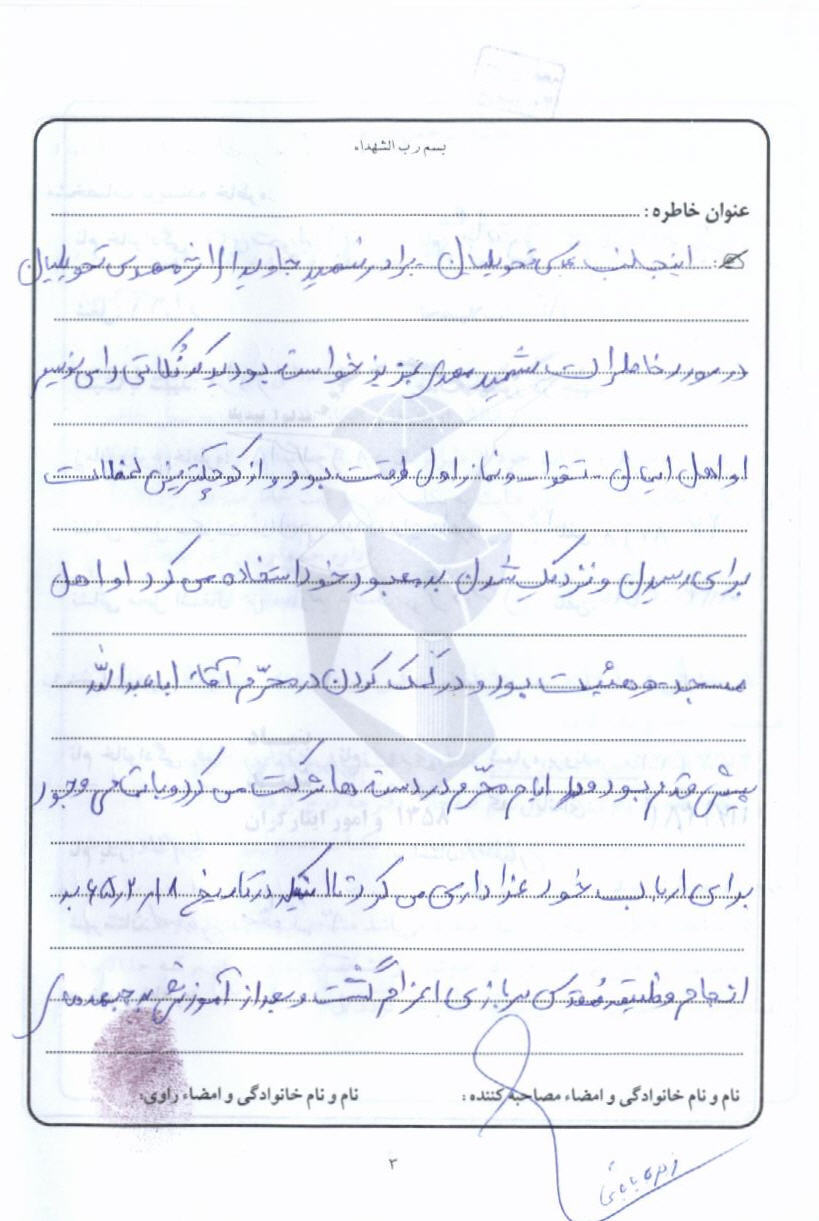 بسم رب الشهداء
عنوان خاطره :
اینجانب عباس تحویلیان برادر شهید جاوید الاثر مهدی تحویلیان
در مورد خاطرات شهید مهدی عزیز خواسته بودید که نکاتی را می نویسم
او اهل ایمان تقوا و نماز اول وقت بود و از کوچکترین لحظات
برای رسیدن و نزدیک شدن به معبود خود استفاده می کرد او اهل
مسجد و هئیت بود و در کمک کردن در محرّم آقا اباعبدالله
پیش قدم بود و در ایام محرّم در دسته ها شرکت می کرد و با تمامی وجود
برای ارباب خود عزاداری می کرد تا اینکه در تاریخ ۱۸ر۲ر۶۵ به
انجام وظیفه مقدس سربازی اعزام گشت و بعد از آموزش به جبهه
نام و نام خانوادگی و امضاء مصاحبه کننده :
نام و نام خانوادگی و امضاء راوی:
۳